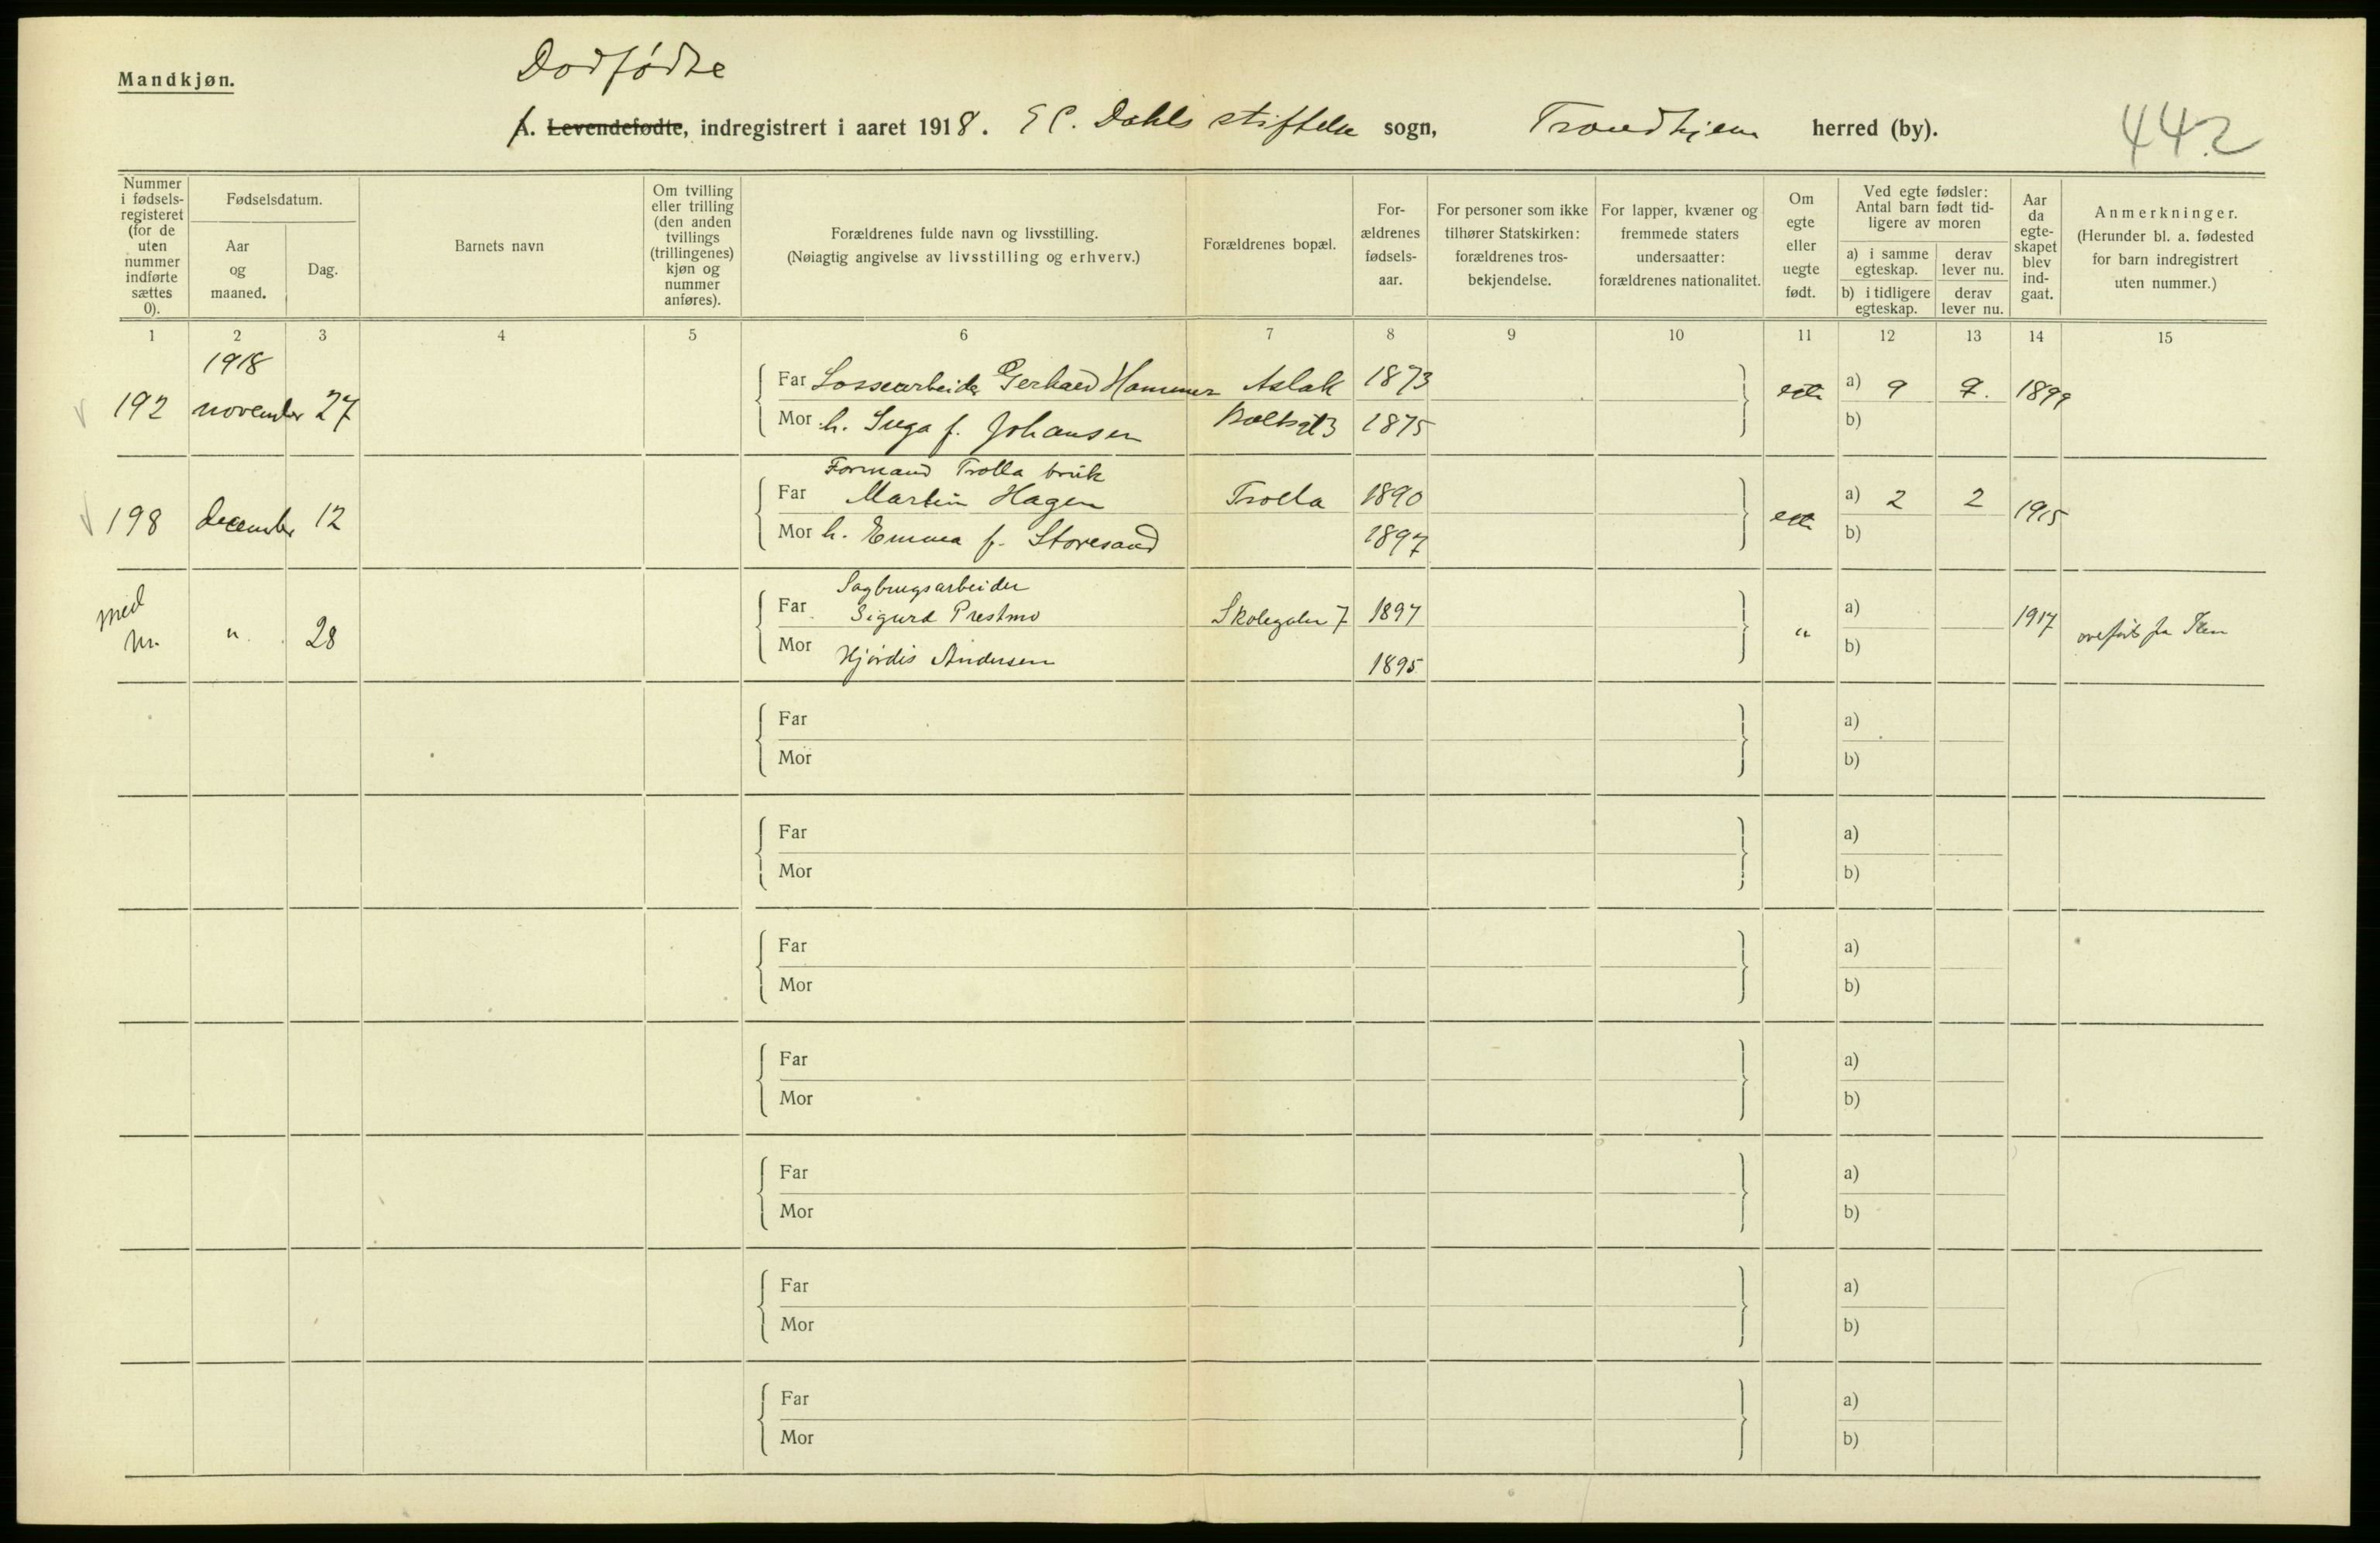 Mandkjøn.
Dødfødte
A. Levendefødte, indregistrert i aaret 1918. E C. Dahls stiftelse sogn, Trondhjem herred (by).
442
Nummer i fødsels-registeret (for de uten nummer indførte sættes 0).
Fødselsdatum.
Aar og maaned.
Dag.
Barnets navn
Om tvilling eller trilling (den anden tvillings (trillingenes) kjøn og nummer anføres).
Forældrenes fulde navn og livsstilling.
(Nøiagtig angivelse av livsstilling og erhverv.)
Forældrenes bopæl.
For-ældrenes fødsels-aar.
For personer som ikke tilhører Statskirken: forældrenes tros-bekjendelse.
For lapper, kvæner og fremmede staters undersaatter: forældrenes nationalitet.
Om egte eller uegte født.
Ved egte fødsler: Antal barn født tid-ligere av moren
a) i samme egteskap.
derav lever nu.
b) i tidligere egteskap.
derav lever nu.
Aar da egte-skapet blev ind-gaat.
Anmerkninger.
(Herunder bl. a. fødested for barn indregistrert uten nummer.)
1 2 3 4 5 6 7 8 9 10 11 12 13 14 15
1918
192 november 27 Far Lossearbeider Gerhard Hammer Aslak 1873 egte a) 9 9. 1899
Mor h. Inga f. Johansen 1875 b)
Formand Trolla bruk
198 december 12 Far Martin Hagen Trolla 1890 egte a) 2 2 1915
Mor h. Emma f. Storesand 1897 b)
Sagbrugsarbeider
med nr. " 28 Far Sigurd Prestmo Skolegaten 7 1897 " a) 1917
Mor Hjørdis Andersen 1895 b)
Far a)
Mor b)
Far a)
Mor b)
Far a)
Mor b)
Far a)
Mor b)
Far a)
Mor b)
Far a)
Mor b)
Far a)
Mor b)